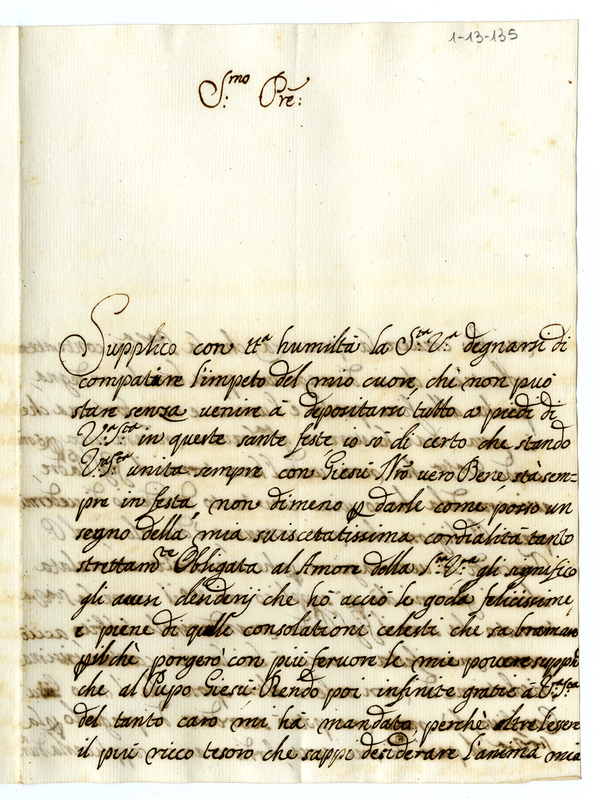 1-13-135
S:mo Prē:
Supplico con tta humiltà la S:ta V:a degnarsi di
compatire l'impeto del mio cuore, chè non può
stare senza venire à depositarsi tutto a' piedi di
V:ra S:ta in queste sante feste, io sò di certo che stando
V:ra S:ta unita sempre con Giesù Nr̃o vero Bene stà sem=
pre in festa, non dimeno p darle come posso un
segno della mia suisceratissima cordialità tanto
strettamte Obligata al Amore della S:ta V:ra gli significo
gli desiderij che hò acciò le goda felicissime,
e piene di quelle consolationi celesti che sa bramare
ilchè porgerò con più feruore le mie pouere suppli
che al Pupo Giesù: Rendo poi infinite gratie à V:ra S:ta
del tanto caro mi hà mandato, perchè oltre l'esere
il più ricco tesoro che sappi desiderare l'anima mia